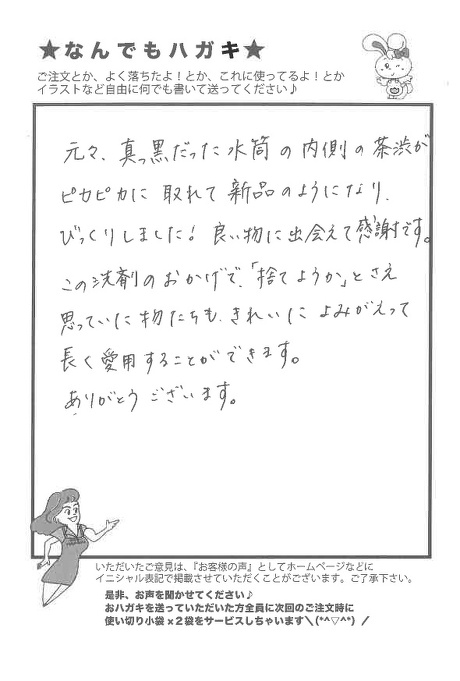 ★なんでもハガキ★
ご注文とか、よく落ちたよ！とか、これに使ってるよ！とか
イラストなど自由に何でも書いて送ってください♪
元々、真っ黒だった水筒の内側の茶渋が
ピカピカに取れて新品のようになり、
びっくりしました！良い物に出会えて感謝です。
この洗剤のおかげで、「捨てようか」とさえ
思っていた物たちも、きれいによみがえって
長く愛用することができます。
ありがとうございます。
いただいたご意見は、『お客様の声』としてホームページなどに
イニシャル表記で掲載させていただくことがございます。ご了承下さい。
是非、お声を聞かせてください♪
おハガキを送っていただいた方全員に次回のご注文時に
使い切り小袋x２袋をサービスしちゃいます＼(*^▽^*)／